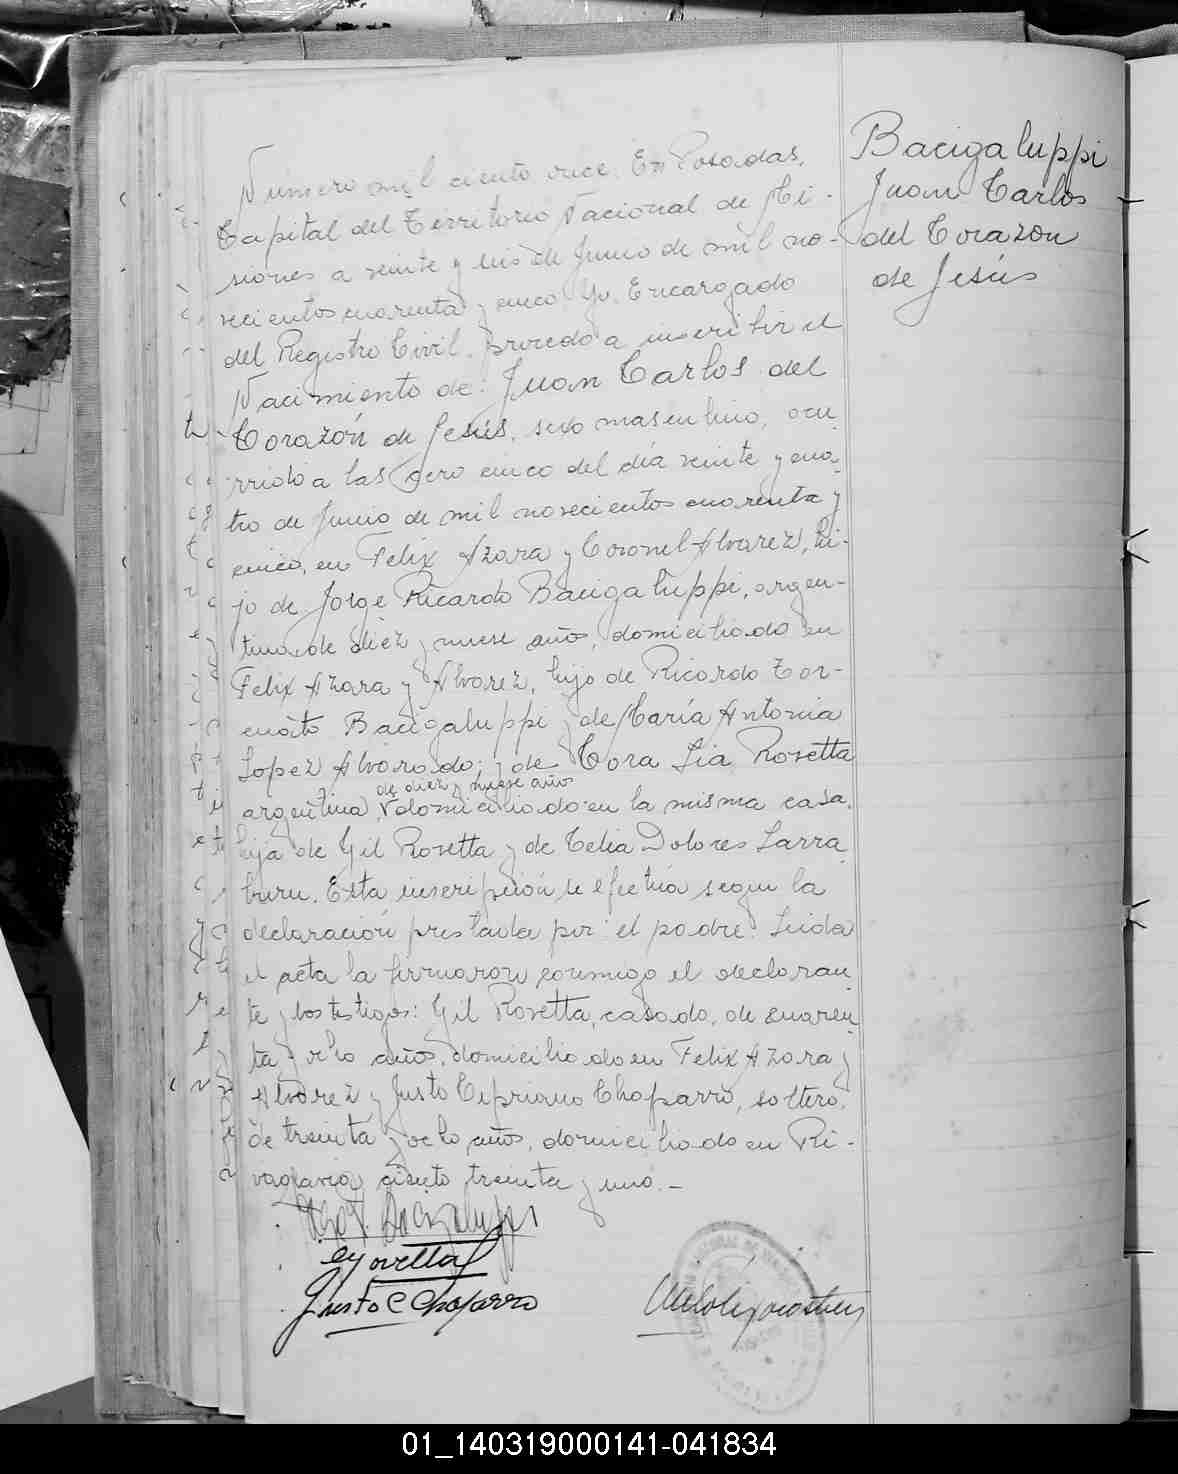 Bacigaluppi
Juan Carlos
del Corazon
de Jesús
Número mil ciento once. En Posadas,
Capital del Territorio Nacional de Mi-
siones a veinte y seis de Junio de mil no-
vecientos cuarenta y cinco. Yo, Encargado
del Registro Civil, procedo a inscribir el
Nacimiento de: Juan Carlos del
Corazón de Jesús, sexo masculino, ocu
rrido a las cero cinco del día veinte y cua-
tro de Junio de mil novecientos cuarenta y
cinco, en Felix Azara y Coronel Alvarez, hi-
jo de Jorge Ricardo Bacigaluppi, argen-
tino, de diez y nueve años, domiciliado en
Felix Azara y Alvarez, hijo de Ricardo Tor-
cuato Bacigaluppi y de María Antonia
Lopez Alvarado; y de Cora Lia Rosetta
de diez y nueve años
argentina, domiciliado en la misma casa,
hija de Gil Rosetta y de Celia Dolores Larra
buru. Esta inscripción se efectúa segun la
declaración prestada por: el padre. Leida
el acta la firmaron conmigo el declaran
te y los testigos: Gil Rosetta, casado, de cuaren
ta y ocho años, domiciliado en Felix Azara y
Alvarez y Justo Cipriano Chaparro, soltero,
de treinta y ocho años, domiciliado en Ri-
vadavia ciento treinta y uno.-
Bacigaluppi
Rosetta
Justo C Chaparro
01_140319000141-041834